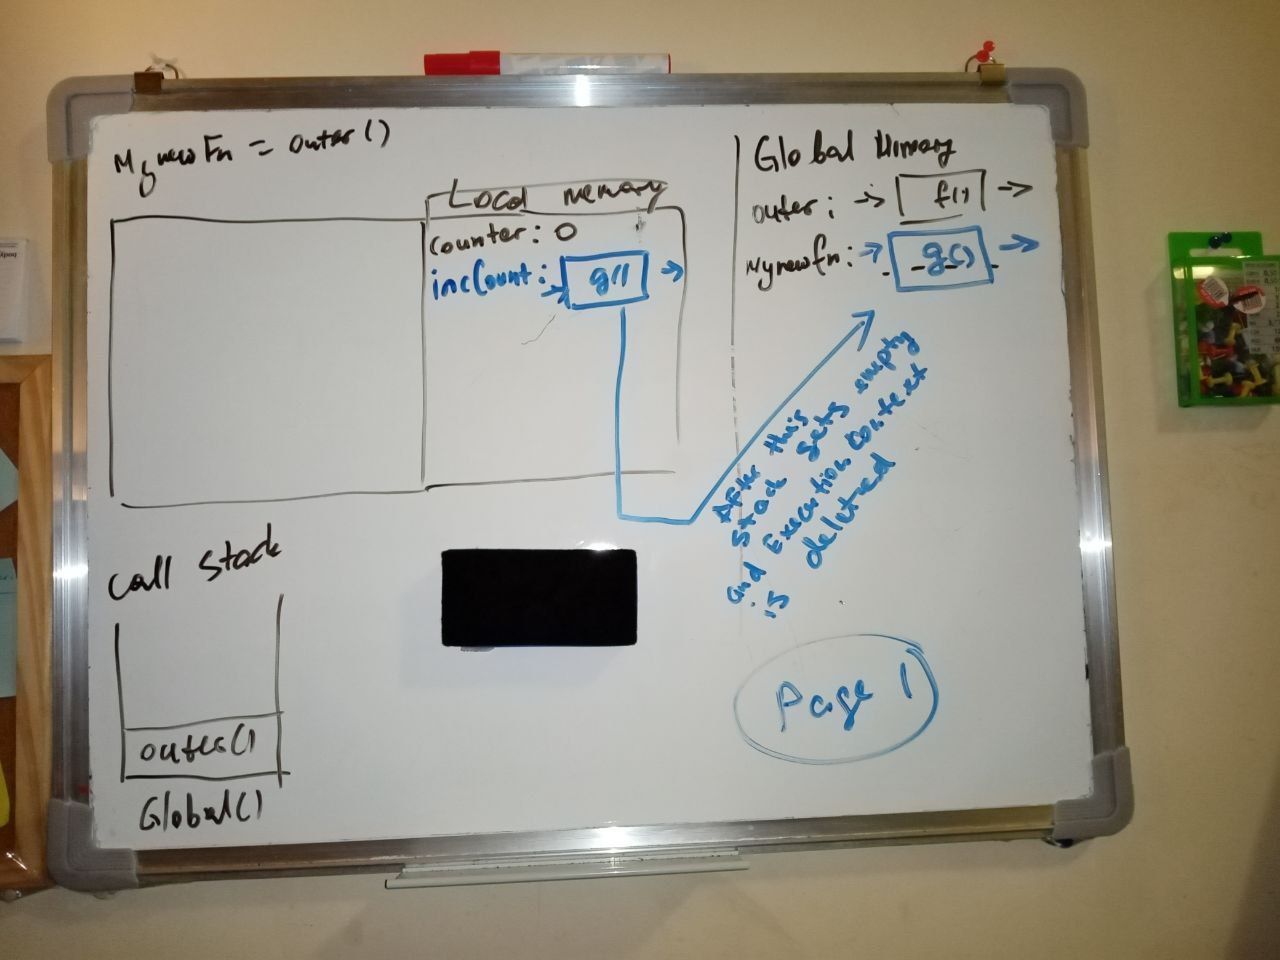 MynewFn = outer()
Local memory
counter: 0
incCount: g()
Global Mimory
outer: f()
Mynewfn: g()
After this
stack gets empty
and Execution context
is deleted
call stack
outer()
Global()
Page 1